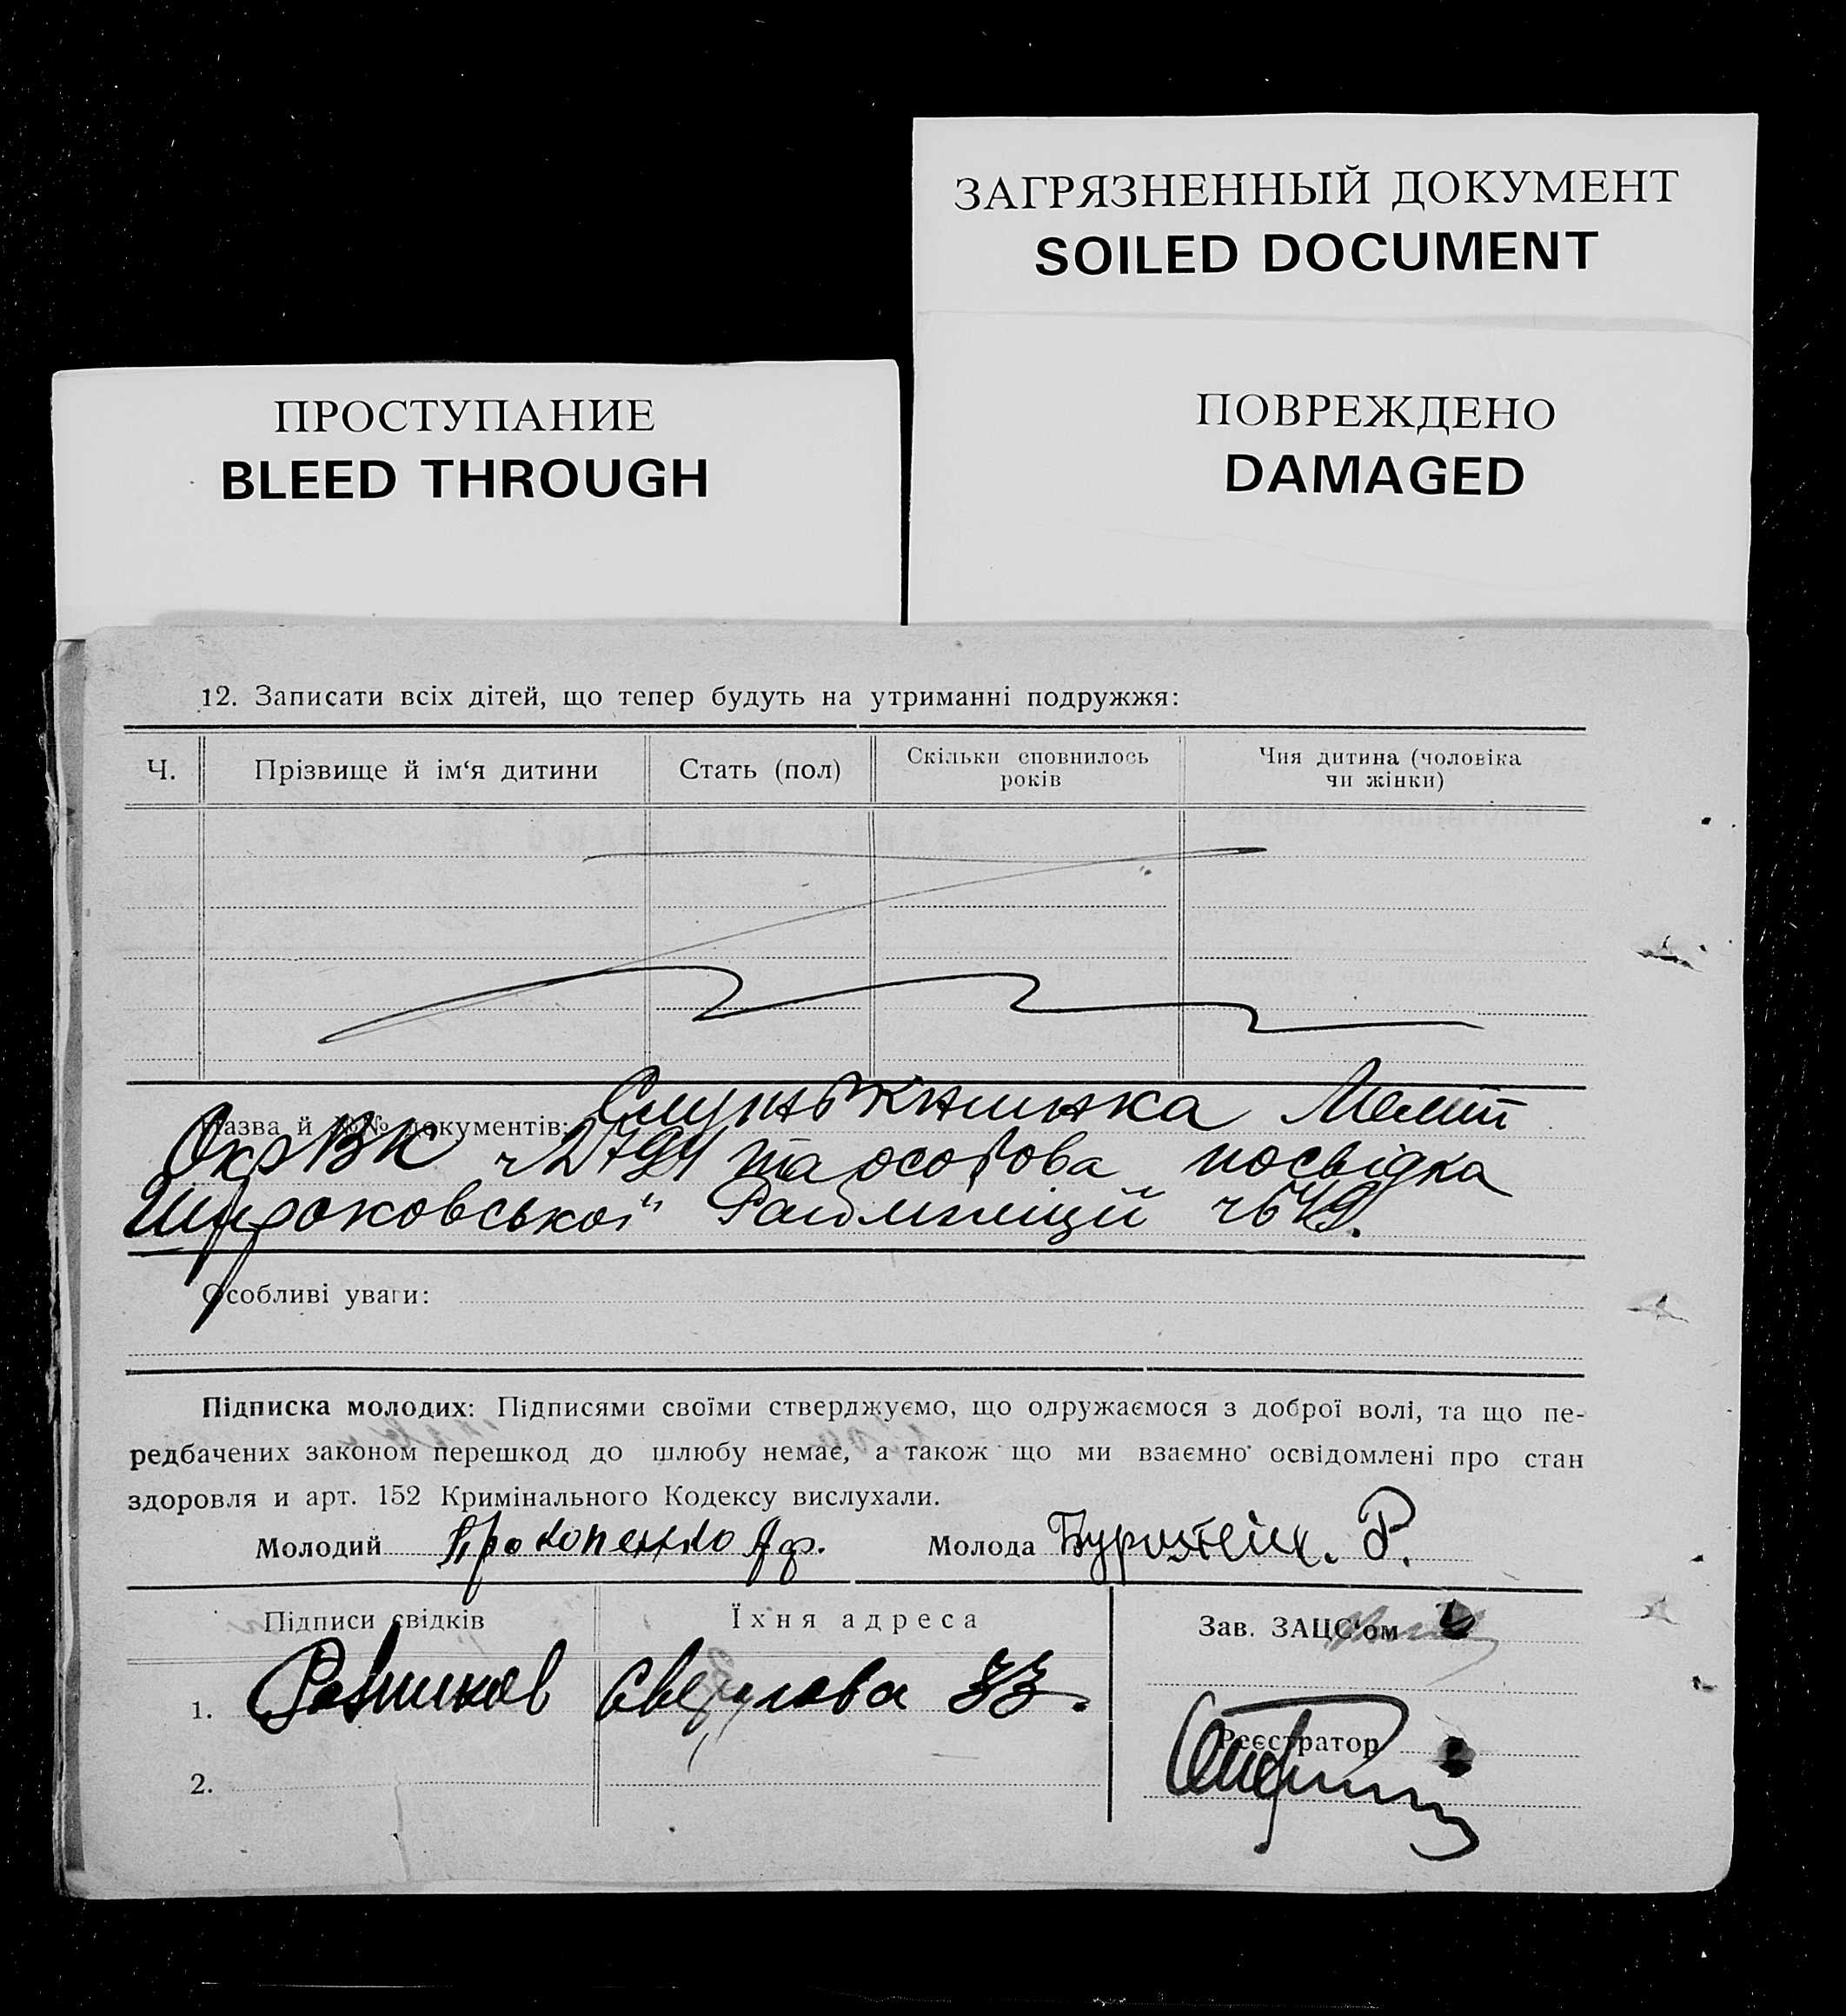 ЗАГРЯЗНЕННЫЙ ДОКУМЕНТ
SOILED DOCUMENT
ПОВРЕЖДЕНО
DAMAGED
ПРОСТУПАНИЕ
BLEED THROUGH
12. Записати всіх дітей, що тепер будуть на утриманні подружжя:
Ч.
Прізвище й ім‘я дитини
Стать (пол)
Скільки сповнилось
років
Чия дитина (чоловіка
чи жінки)
Назва й №№ документів: Служ книжка Меліт
ОкрВК та особова посвідка
Широковської Райміліції ч 649.
Особливі уваги:
Підписка молодих: Підписями своїми стверджуємо, що одружаємося з доброї волі, та що пе-
редбачених законом перешкод до шлюбу немає, а також що ми взаємно освідомлені про стан
здоровля и арт. 152 Кримінального Кодексу вислухали.
Молодий Прокопенко Аф. Молода Бурштейн. Р.
Підписи свідків
Їхня адреса
Зав. ЗАЦС‘ом
1. Свердлова 33.
Реєстратор
2.